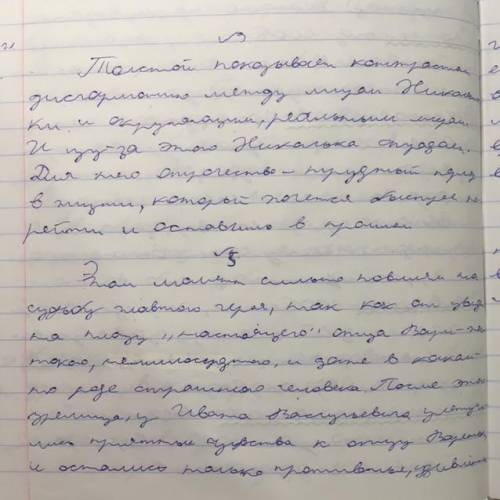 Толстой показывает контраст и
дисгармонию между миром Николень
ки и окружающим, реальным миром.
И из-за этого Николька страдает.
Для него отрочество - трудный перио
в жизни, который хочется быстрее пе
рейти и оставить в прошлом
№5
Этот момент сильно повлиял на
судьбу главного героя, так как он увид
на плацу "настоящего" отца Вари-же
токого, немилосердного, и даже в какой-
то роде страшного человека. После этого
зрелища, у Ивана Васильевича улетучи
лись приятные чувства к отцу Вареньки
и остались только противные, удивлён